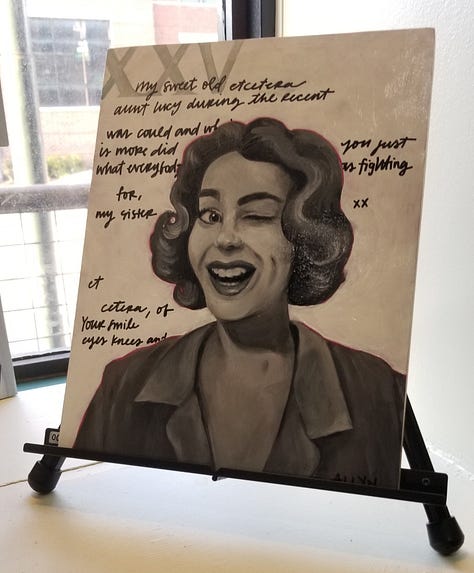 XXV
my sweet old etcetera
aunt lucy during the recent
war could and
is more did you just
what everybody was fighting
for,
my sister xx
et
cetera, of
Your smile
eyes knees and
ALLYN